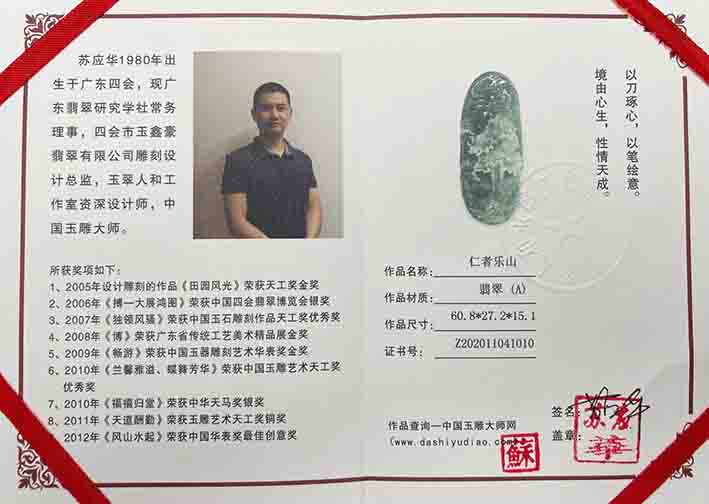 苏应华1980年出
生于广东四会，现广
东翡翠研究学社常务
理事，四会市玉鑫豪
翡翠有限公司雕刻设
计总监，玉翠人和工
作室资深设计师，中
国玉雕大师。
所获奖项如下：
1、2005年设计雕刻的作品《田园风光》荣获天工奖金奖
2、2006年《搏一大展鸿图》荣获中国四会翡翠博览会银奖
3、2007年《独领风骚》荣获中国玉石雕刻作品天工奖优秀奖
4、2008年《博》荣获广东省传统工艺美术精品展金奖
5、2009年《畅游》荣获中国玉器雕刻艺术华表奖金奖
6、2010年《兰馨雅逌、蝶舞芳华》荣获中国玉雕艺术天工奖
优秀奖
7、2010年《福禧归堂》荣获中华天马奖银奖
8、2011年《天道酬勤》荣获玉雕艺术天工奖铜奖
9、2012年《风山水起》荣获中国华表奖最佳创意奖
以刀琢心，以笔绘意。
境由心生，性情天成。
作品名称： 仁者乐山
作品材质： 翡翠 (A)
作品尺寸： 60.8*27.2*15.1
证书号： Z202011041010
作品查询—中国玉雕大师网
(www.dashiyudiao.com)
签名：
盖章：
蘇
苏应
華